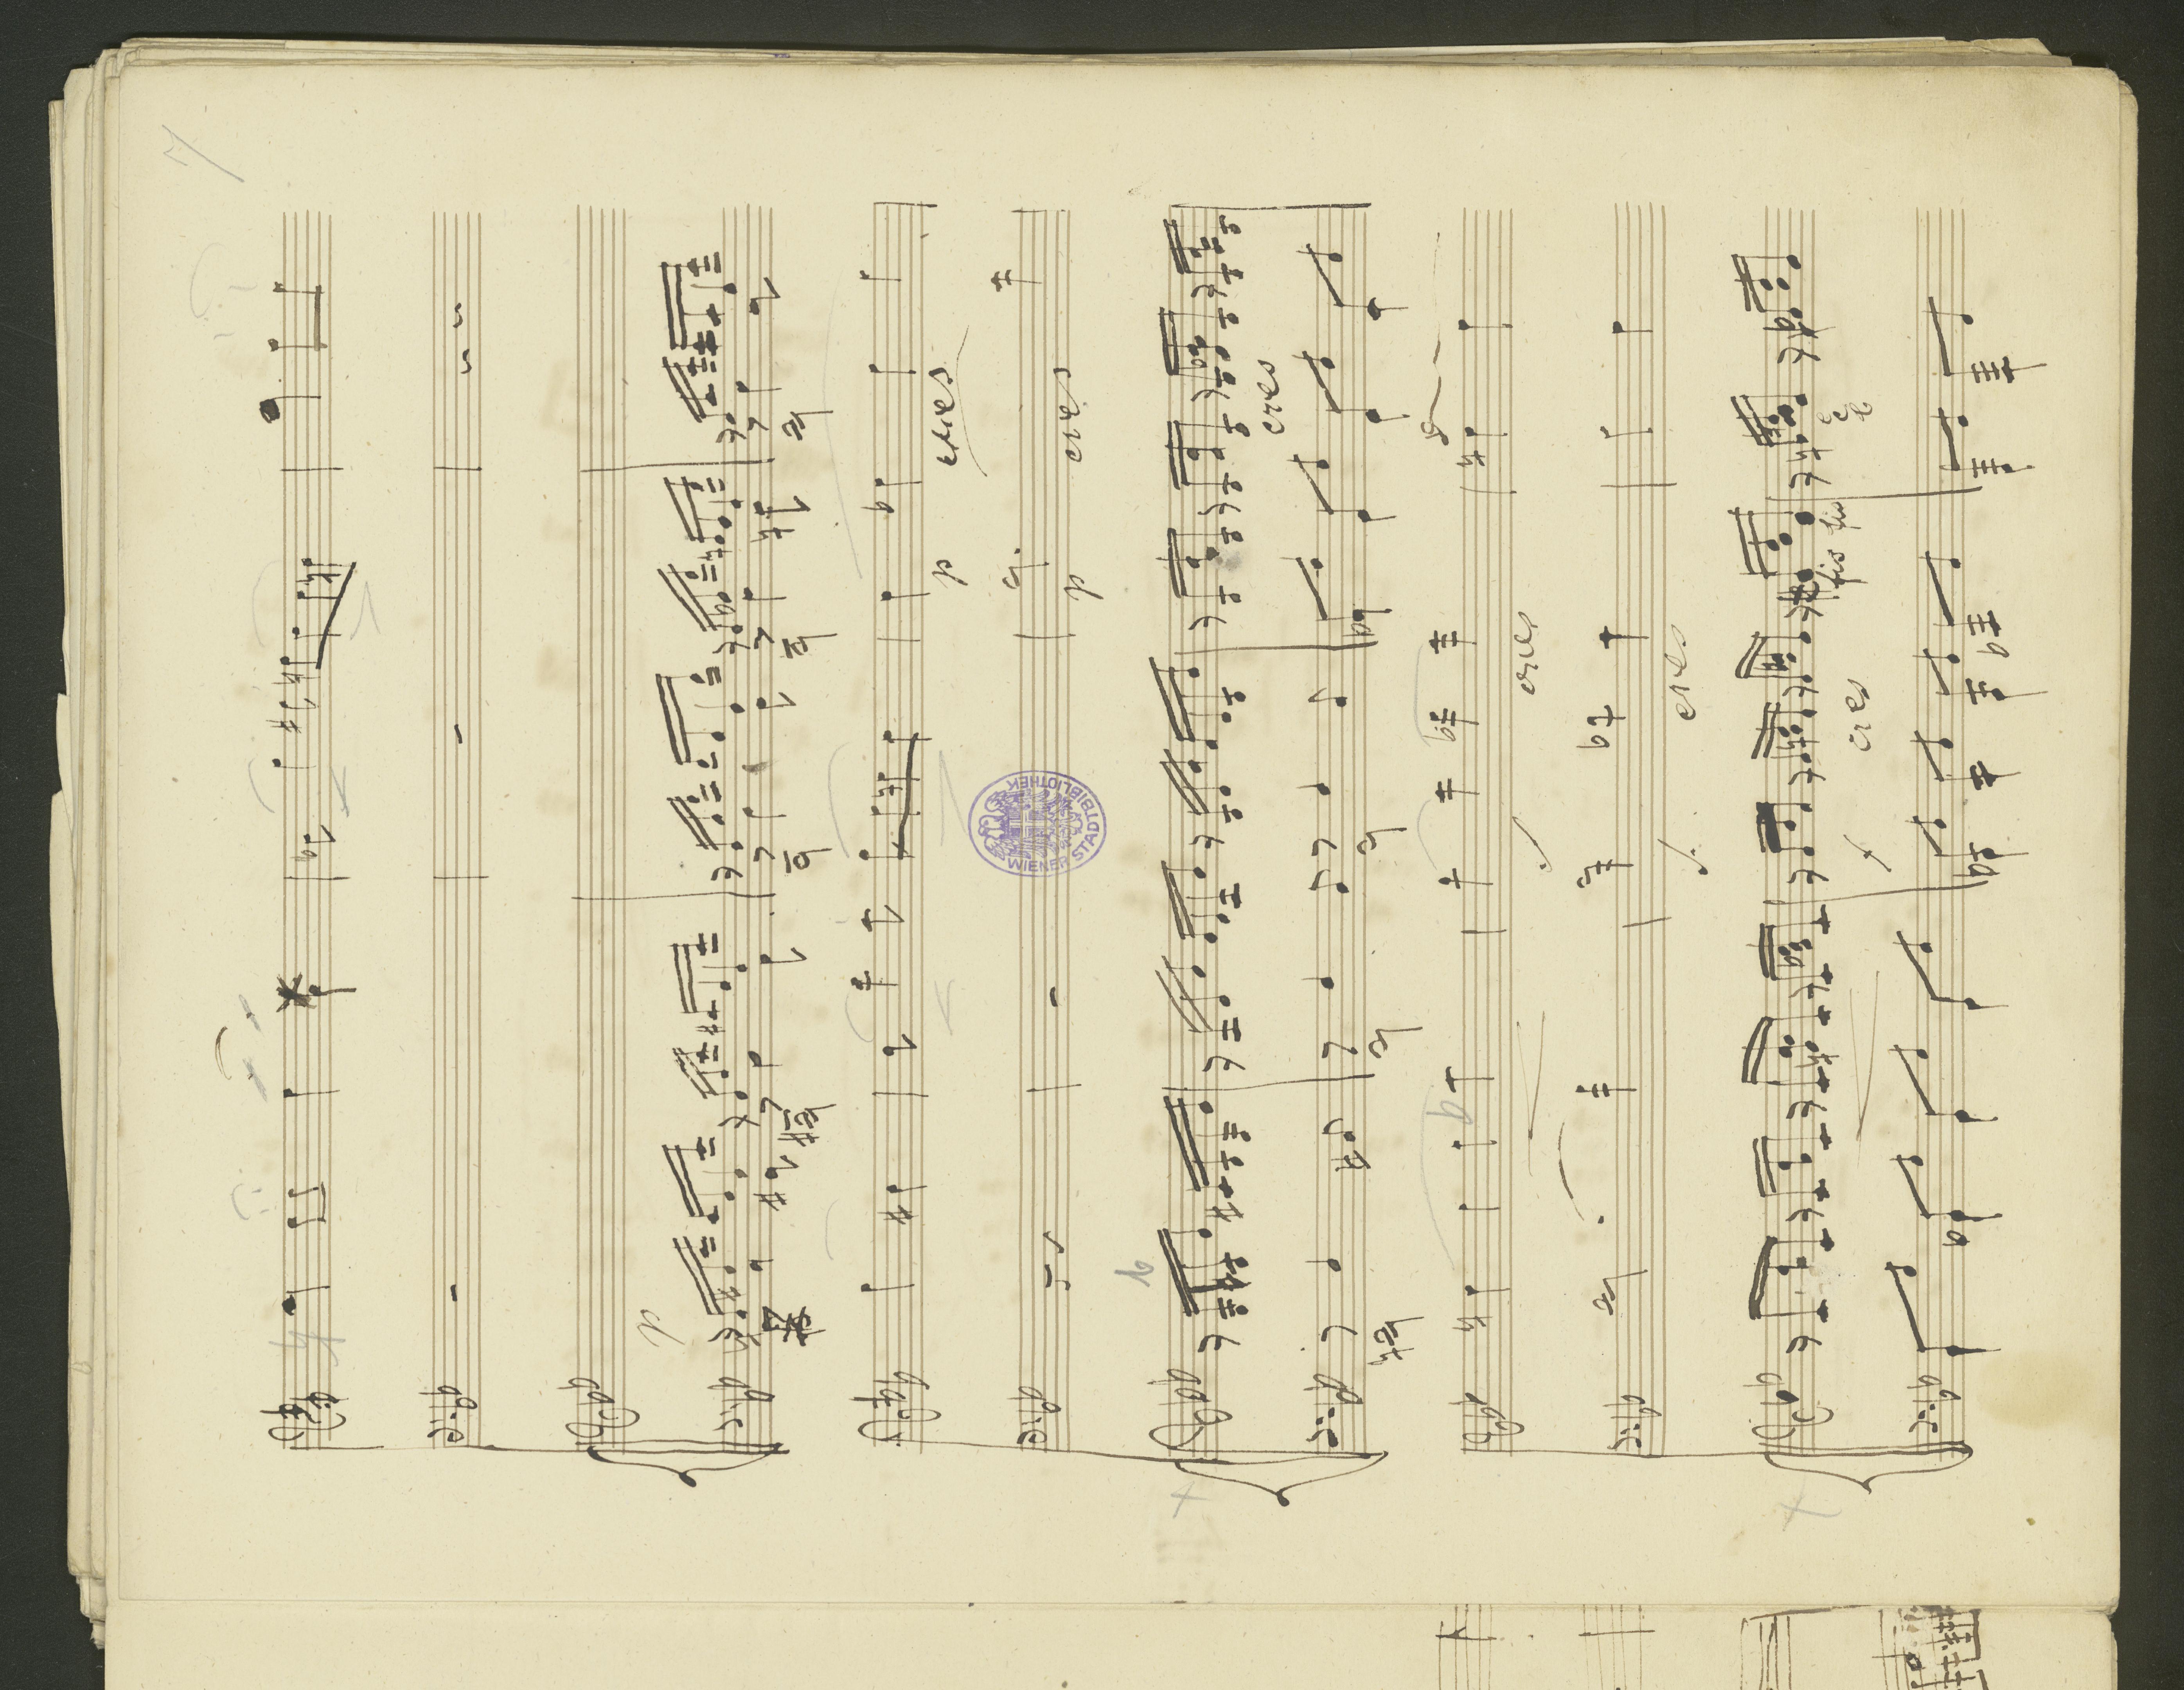 7
p
cres
cres
p
p
WIENER STADTBIBLIOTHEK
cres
cres
cres
cres
fis fis